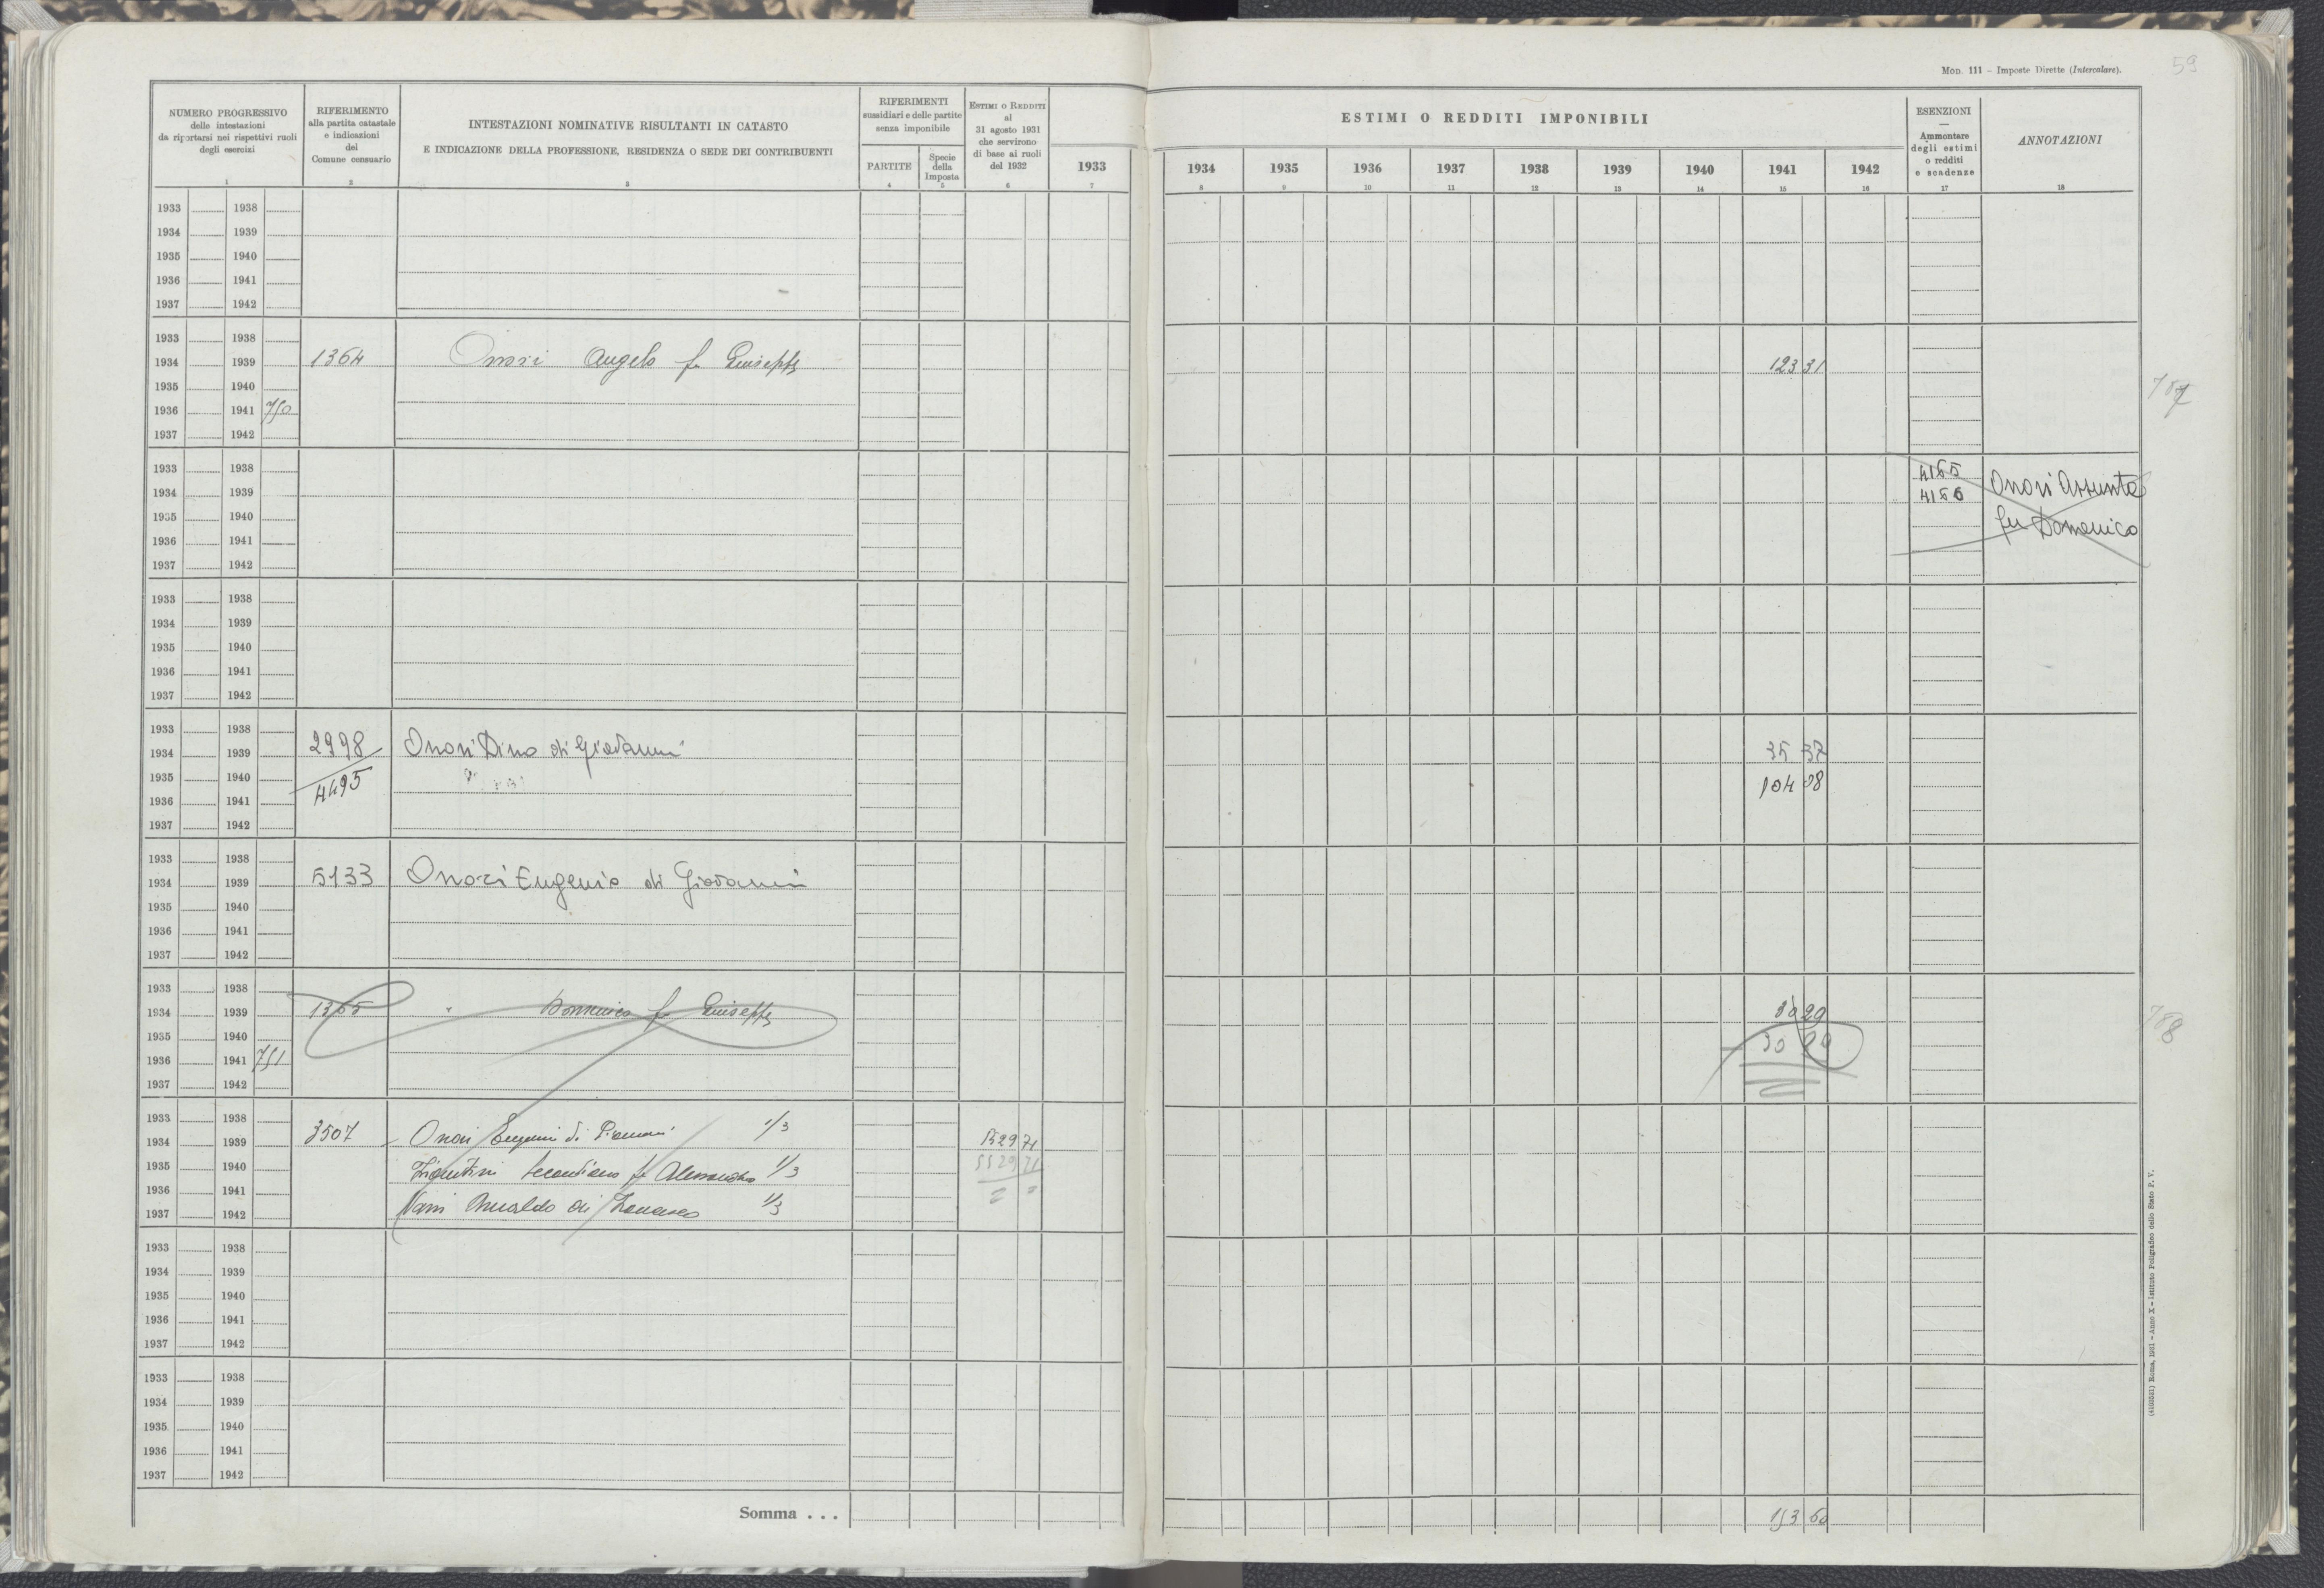 MOD. 111 – Imposte Dirette (Intercalare).
59
NUMERO PROGRESSIVO
delle intestazioni
da riportarsi nei rispettivi ruoli
degli esercizi
1
RIFERIMENTO
alla partita catastale
e indicazioni
del
Comune censuario
2
INTESTAZIONI NOMINATIVE RISULTANTI IN CATASTO
E INDICAZIONE DELLA PROFESSIONE, RESIDENZA O SEDE DEI CONTRIBUENTI
3
RIFERIMENTI
sussidiari e delle partite
senza imponibile
PARTITE
4
Specie
della
Imposta
5
ESTIMI O REDDITI
al
31 agosto 1931
che servirono
di base ai ruoli
del 1932
6
1933
7
ESTIMI O REDDITI IMPONIBILI
1934 1935 1936 1937 1938 1939 1940 1941 1942
8 9 10 11 12 13 14 15 16
ESENZIONI
—
Ammontare
degli estimi
o redditi
e scadenze
17
ANNOTAZIONI
18
1933 1938
1934 1939
1935 1940
1936 1941
1937 1942
1933 1938
1934 1939 1364 Onori Angelo fu Giuseppe 123 31
1935 1940
1936 1941 750
787
1937 1942
1933 1938 4165
1934 1939 4166 Onori Assunta
1935 1940 fu Domenico
1936 1941
1937 1942
1933 1938
1934 1939
1935 1940
1936 1941
1937 1942
1933 1938
1934 1939 2998 Onori Dino di Giovanni 35 37
1935 1940 4495 104 08
1936 1941
1937 1942
1933 1938
1934 1939 5133 Onori Eugenio di Giovanni
1935 1940
1936 1941
1937 1942
1933 1938
1934 1939 1365 " Domenico fu Giuseppe 30 29
788
1935 1940 30 29
1936 1941 751
1937 1942
1933 1938 3507 Onori Eugenio di Giovanni 1/3
1934 1939 5529 71
1935 1940 fu Alessandro 1/3 5529 71
1936 1941
1937 1942 Nani di Francesco 1/3
1933 1938
1934 1939
1935 1940
1936 1941
1937 1942
1933 1938
1934 1939
1935 1940
1936 1941
1937 1942
Somma . . . 153 60
(4103331) Roma, 1931 – Anno X – Istituto Poligrafico dello Stato P. V.